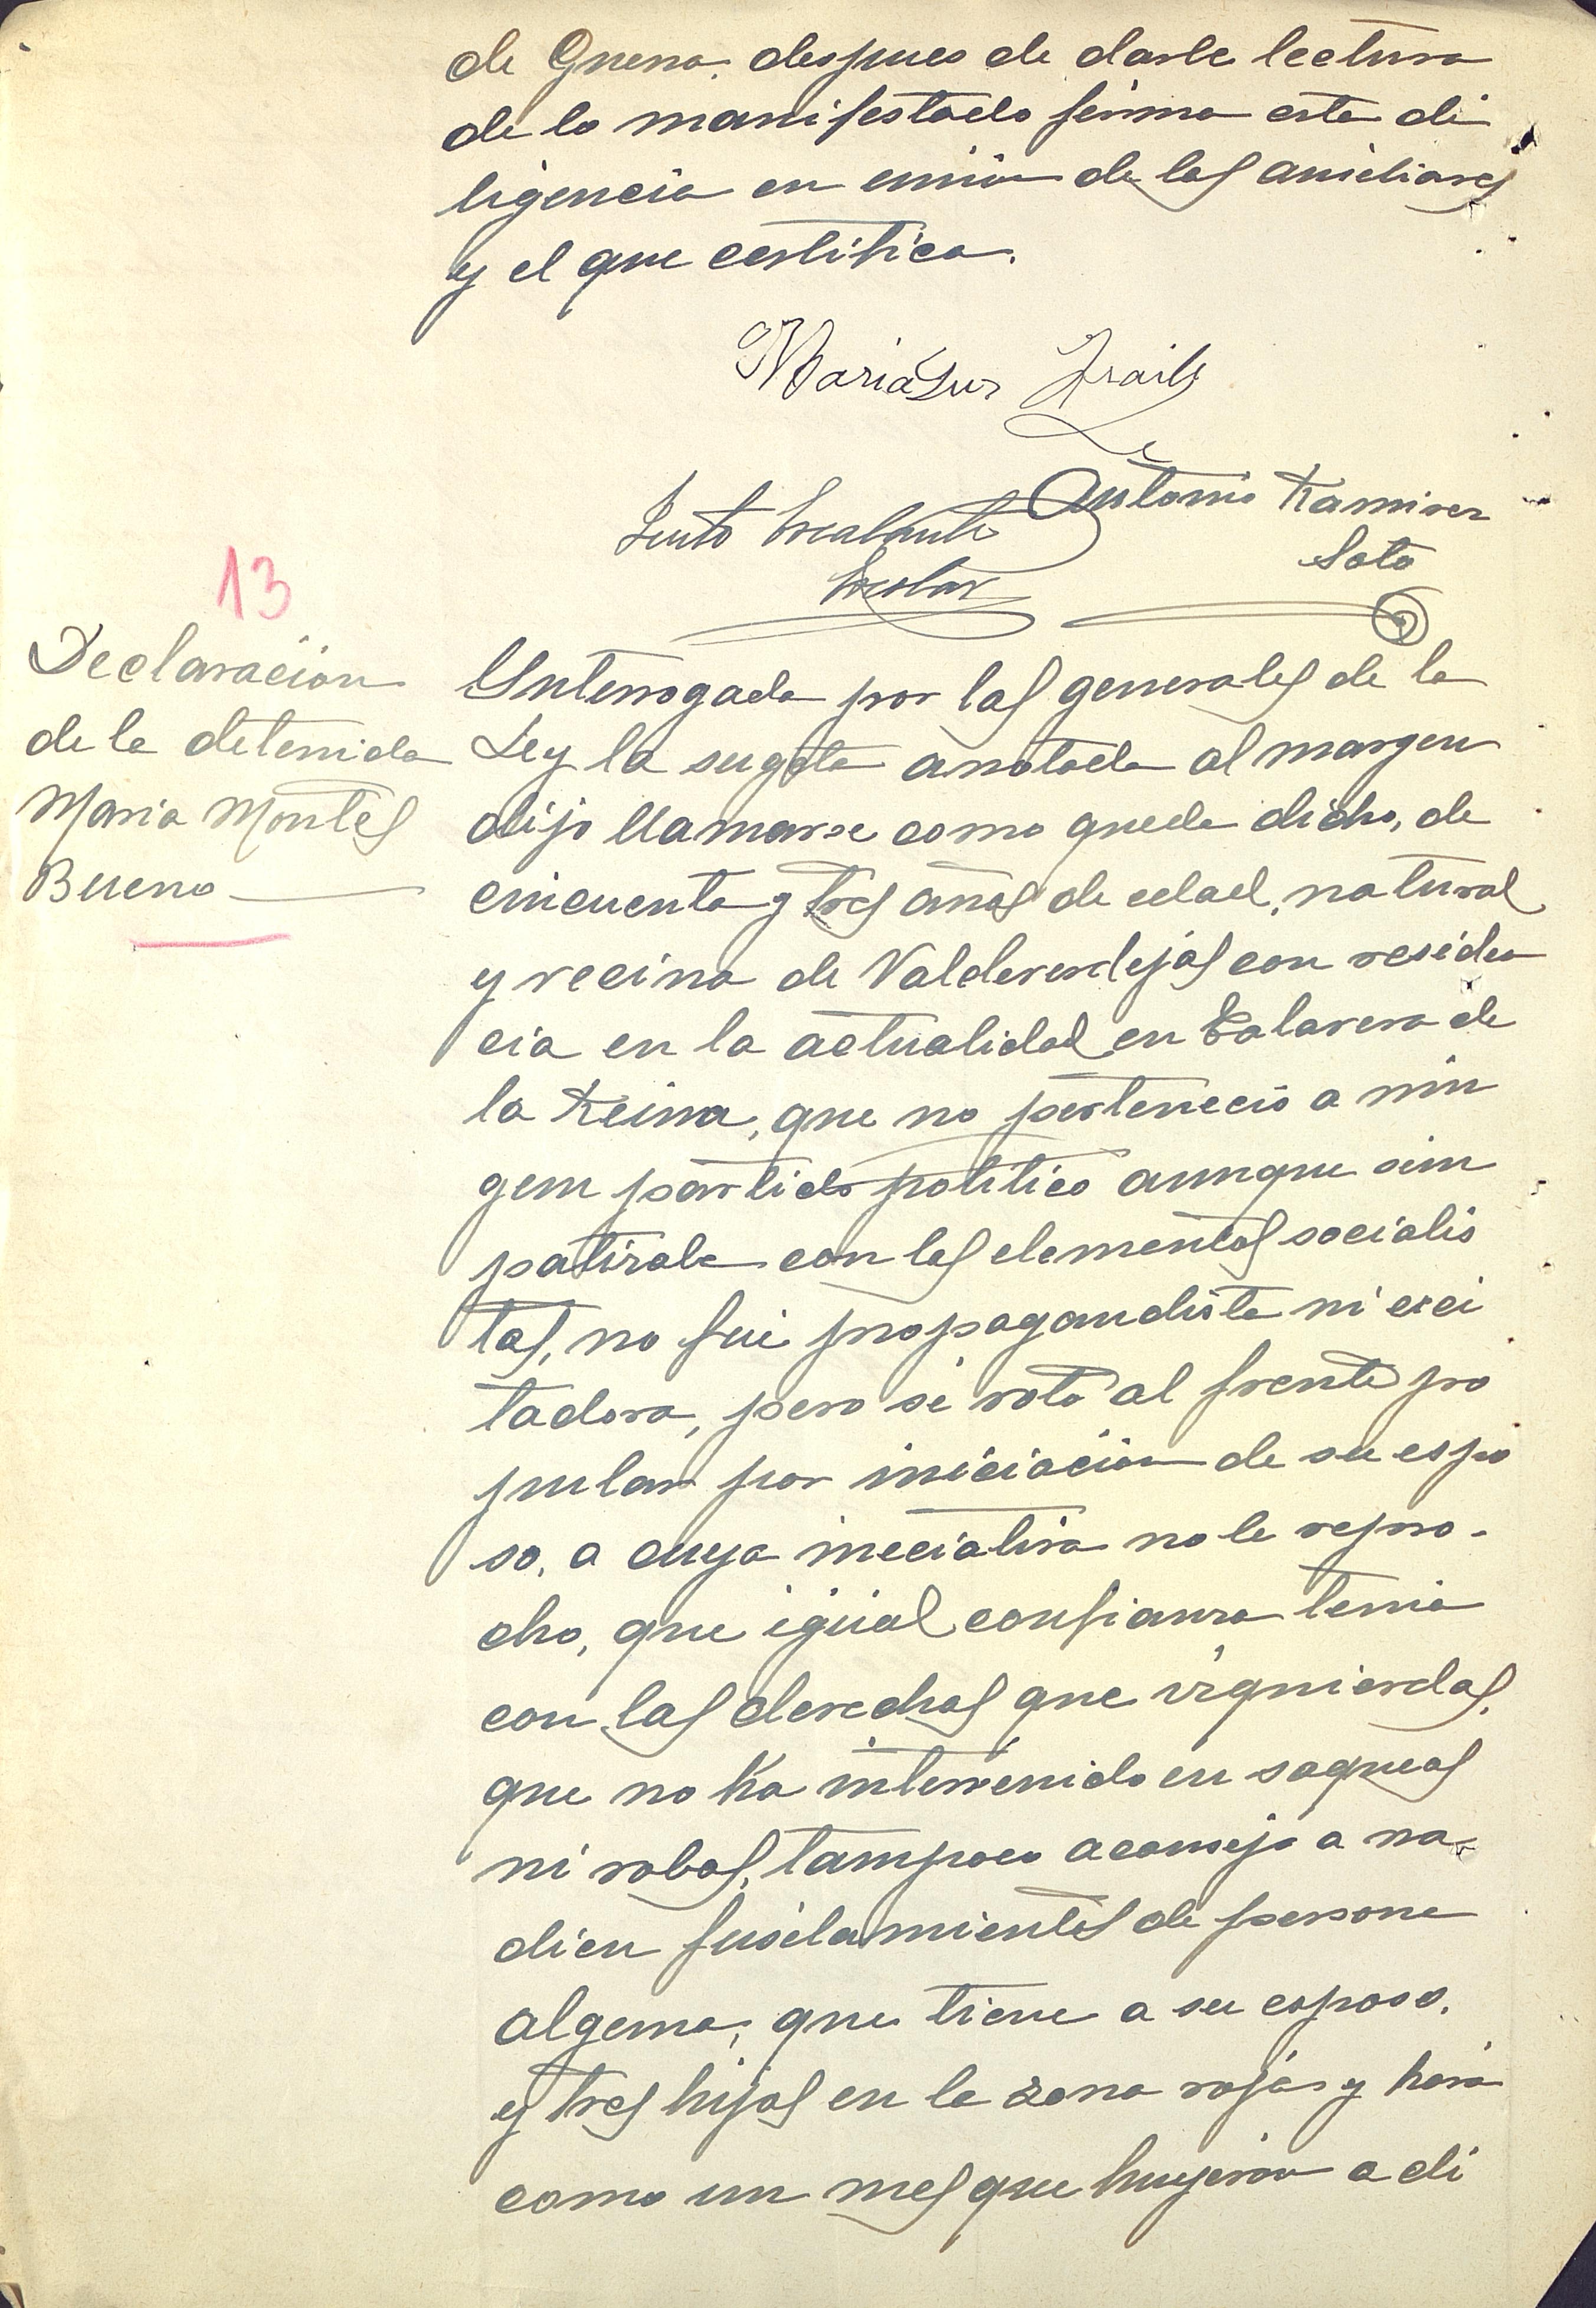 de Guerra, despues de darle lectura
de lo manifestado firma esta di
ligencia en union de los auxiliares
y el que certifica.
Maria Luz Fraile
Antonio Ramirez
Justo Escalante
Soto
Escobar
13
Declaracion
de la detenida
Maria Montes
Bueno
Ynterrogada por las generales de la
Ley la sugeta anotada al margen
dijo llamarse como queda dicho, de
cincuenta y tres años de edad, natural
y vecina de Valdeverdejas con residen
cia en la actualidad en Talavera de
la Reina, que no pertenecio a nin
gun partido politico aunque sim
patizaba con los elementos socialis
tas, no fué propagandista ni exci
tadora, pero si votó al frente po
pular por iniciacion de su espo
so, a cuya iniciativa no le repro-
cho, que igual confianza tenia
con las derechas que izquierdas,
que no ha intervenido en saqueos
ni robos, tampoco aconsejo a na
die en fusilamientos de persona
alguna, que tiene a su esposo,
y tres hijos en la zona roja y hará
como un mes que huyeron a di